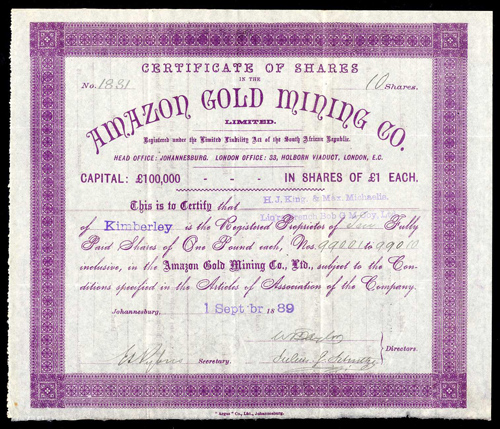 CERTIFICATE OF SHARES
IN THE
No. 1831
10 Shares.
AMAZON GOLD MINING CO.
LIMITED.
Registered under the Limited Liability Act of the South African Republic.
HEAD OFFICE: JOHANNESBURG. LONDON OFFICE: 33, HOLBORN VIADUCT, LONDON, E.C.
CAPITAL: £100,000 - - - IN SHARES OF £1 EACH.
This is to Certify that H.J. King & Max Michaelis.
of Kimberley is the Registered Proprietor of Ten Fully
Paid Shares of One Pound each, Nos. 99001 to 99010
inclusive, in the Amazon Gold Mining Co., Ltd., subject to the Con-
ditions specified in the Articles of Association of the Company.
Johannesburg, 1 Septbr 1889
Secretary.
Directors.
"Argus" Co., Ltd., Johannesburg.